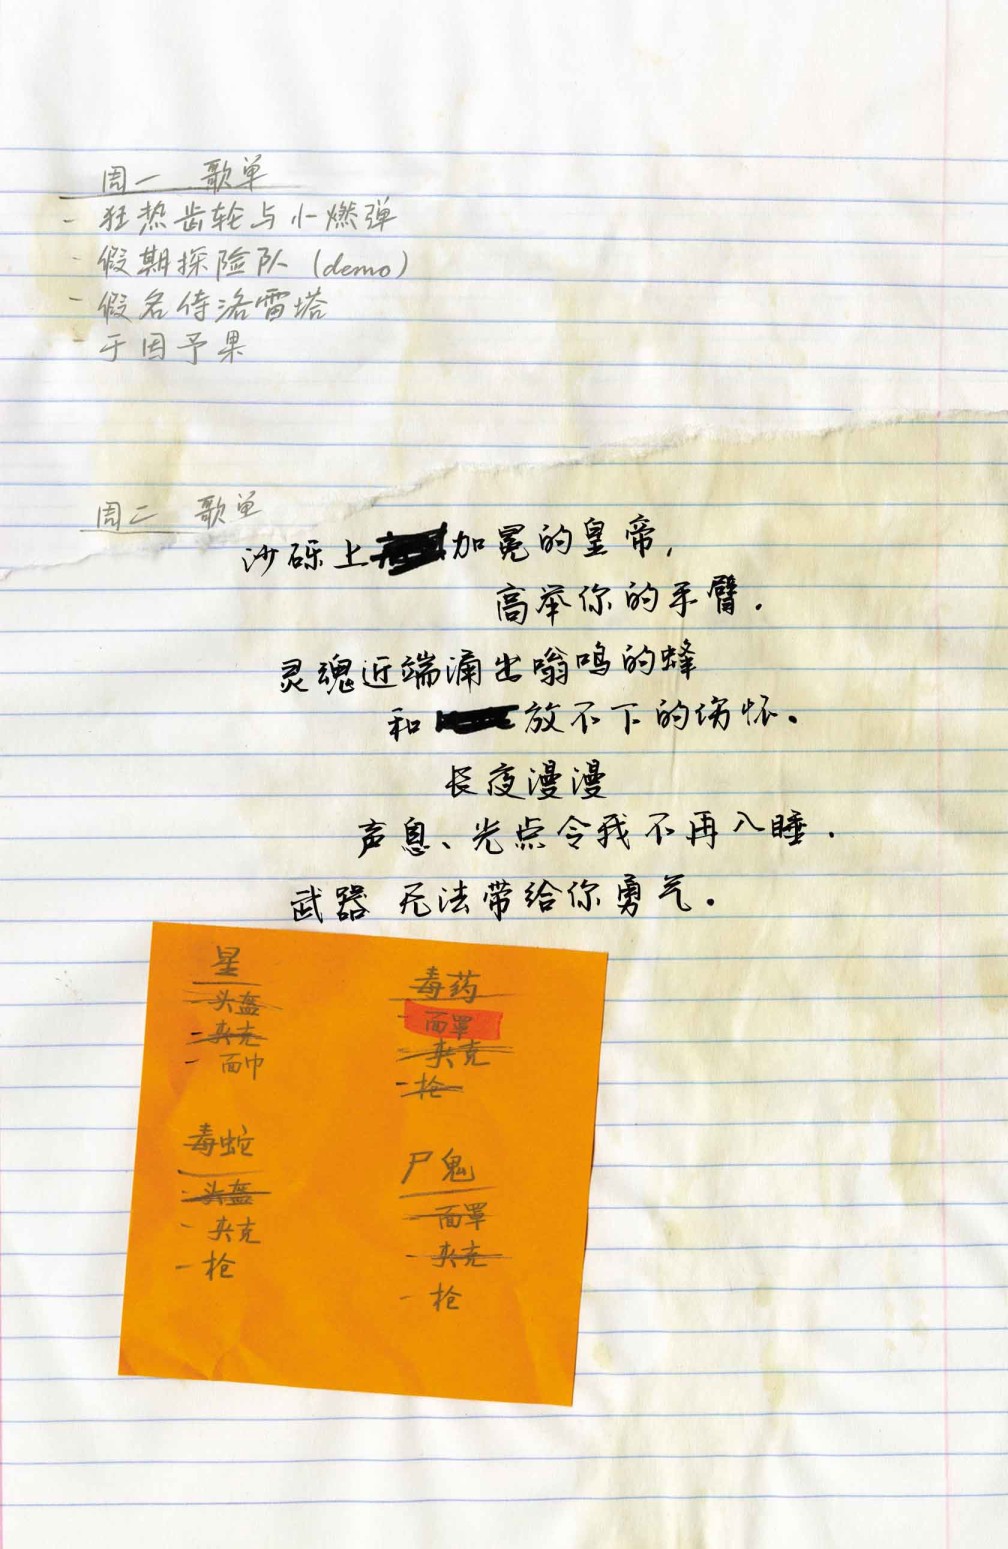 周一 歌单
- 狂热齿轮与小燃弹
- 假期探险队 (demo)
- 假名侍洛雷塔
- 于因予果
周二 歌单
沙砾上加冕的皇帝,
高举你的手臂.
灵魂近端涌出嗡鸣的蜂
和放不下的伤怀。
长夜漫漫
声息、光点令我不再入睡.
武器 无法带给你勇气.
星
- 头盔
- 夹克
- 面巾
毒药
- 面罩
- 夹克
- 枪
毒蛇
- 头盔
- 夹克
- 枪
尸鬼
- 面罩
- 夹克
- 枪